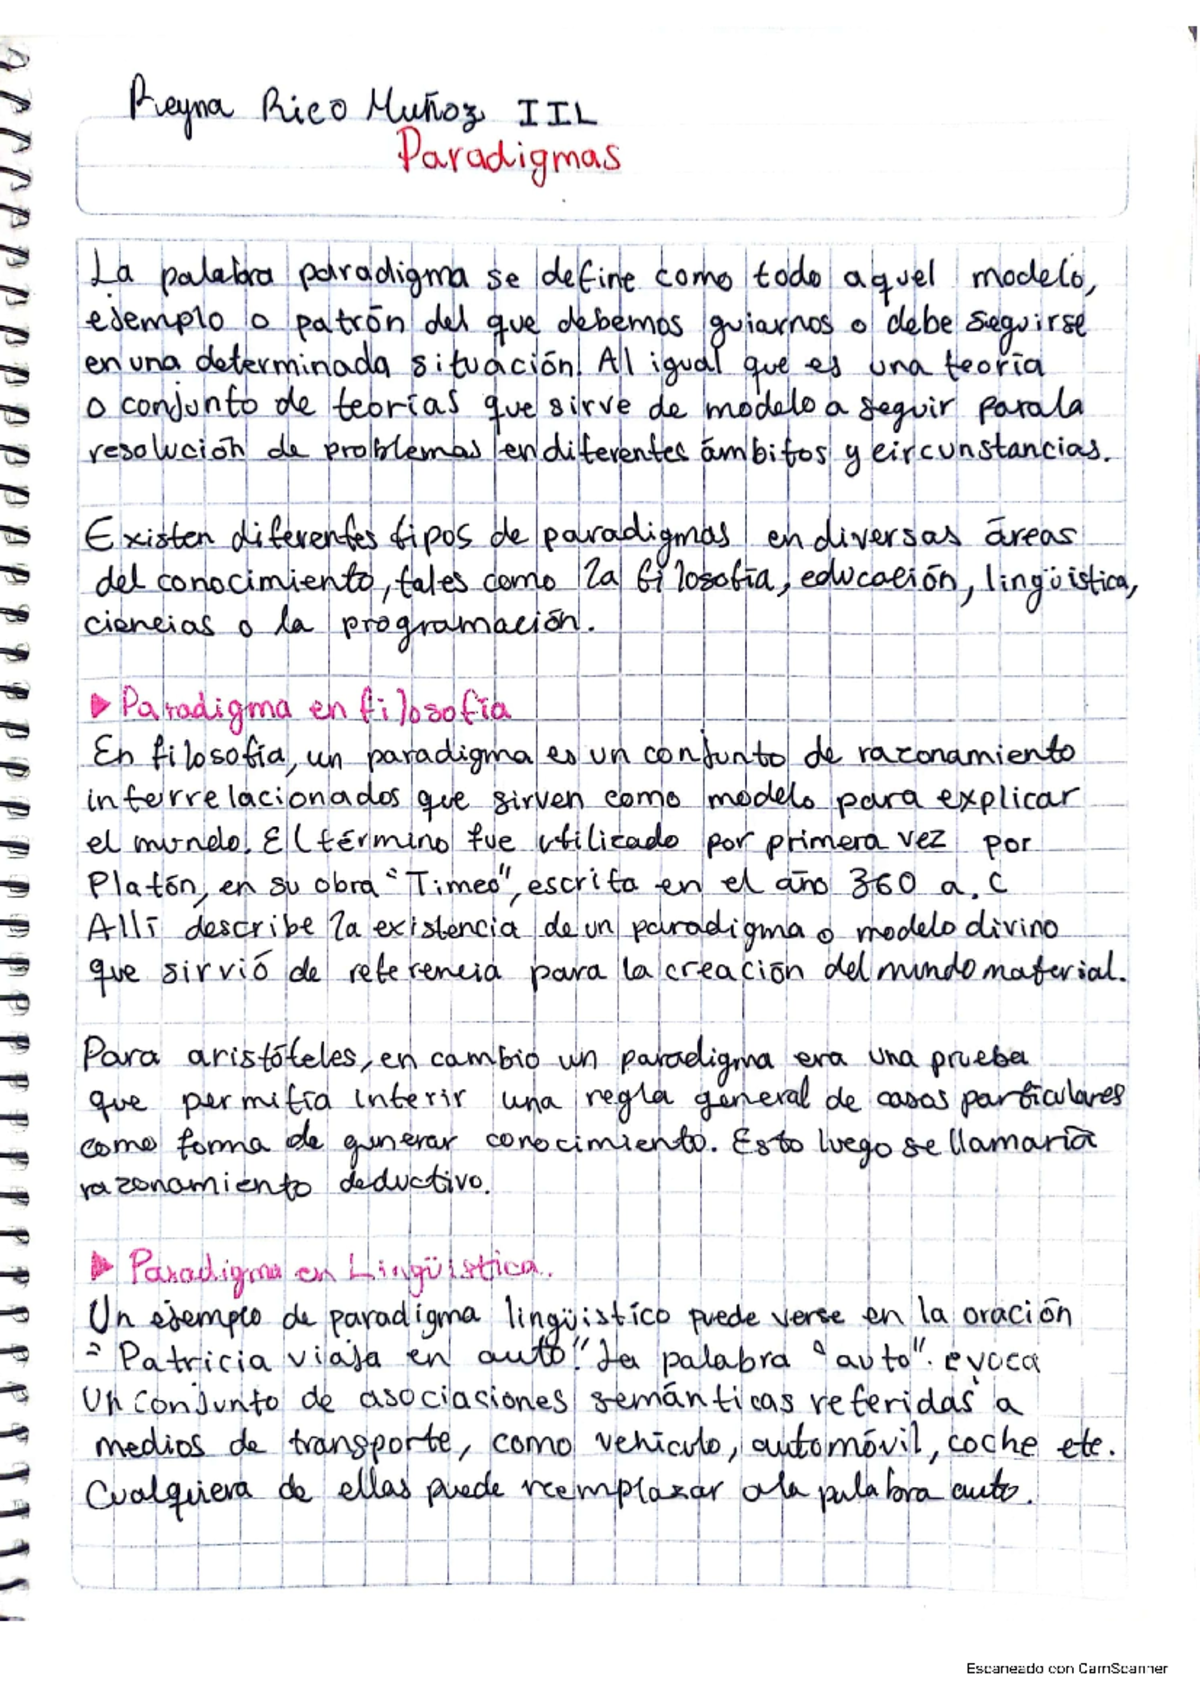 Reyna Rico Muñoz IIL
Paradigmas
La palabra paradigma se define como todo aquel modelo,
ejemplo o patrón del que debemos guiarnos o debe seguirse
en una determinada situación. Al igual que es una teoría
o conjunto de teorías que sirve de modelo a seguir para la
resolución de problemas en diferentes ámbitos y circunstancias.
Existen diferentes tipos de paradigmas en diversas áreas
del conocimiento, tales como la filosofía, educación, lingüística,
ciencias o la programación.
▶ Paradigma en filosofía
En filosofía, un paradigma es un conjunto de razonamiento
interrelacionados que sirven como modelo para explicar
el mundo. El término fue utilizado por primera vez por
Platón, en su obra "Timeo", escrita en el año 360 a.C
Allí describe la existencia de un paradigma o modelo divino
que sirvió de referencia para la creación del mundo material.
Para aristóteles, en cambio un paradigma era una prueba
que permitía inferir una regla general de casos particulares
como forma de generar conocimiento. Esto luego se llamaría
razonamiento deductivo.
▶ Paradigma en Lingüística.
Un ejemplo de paradigma lingüistico puede verse en la oración
"Patricia viaja en auto". La palabra "auto". evoca
un conjunto de asociaciones semánticas referidas a
medios de transporte, como vehículo, automóvil, coche etc.
Cualquiera de ellas puede reemplazar a la palabra auto.
Escaneado con CamScanner